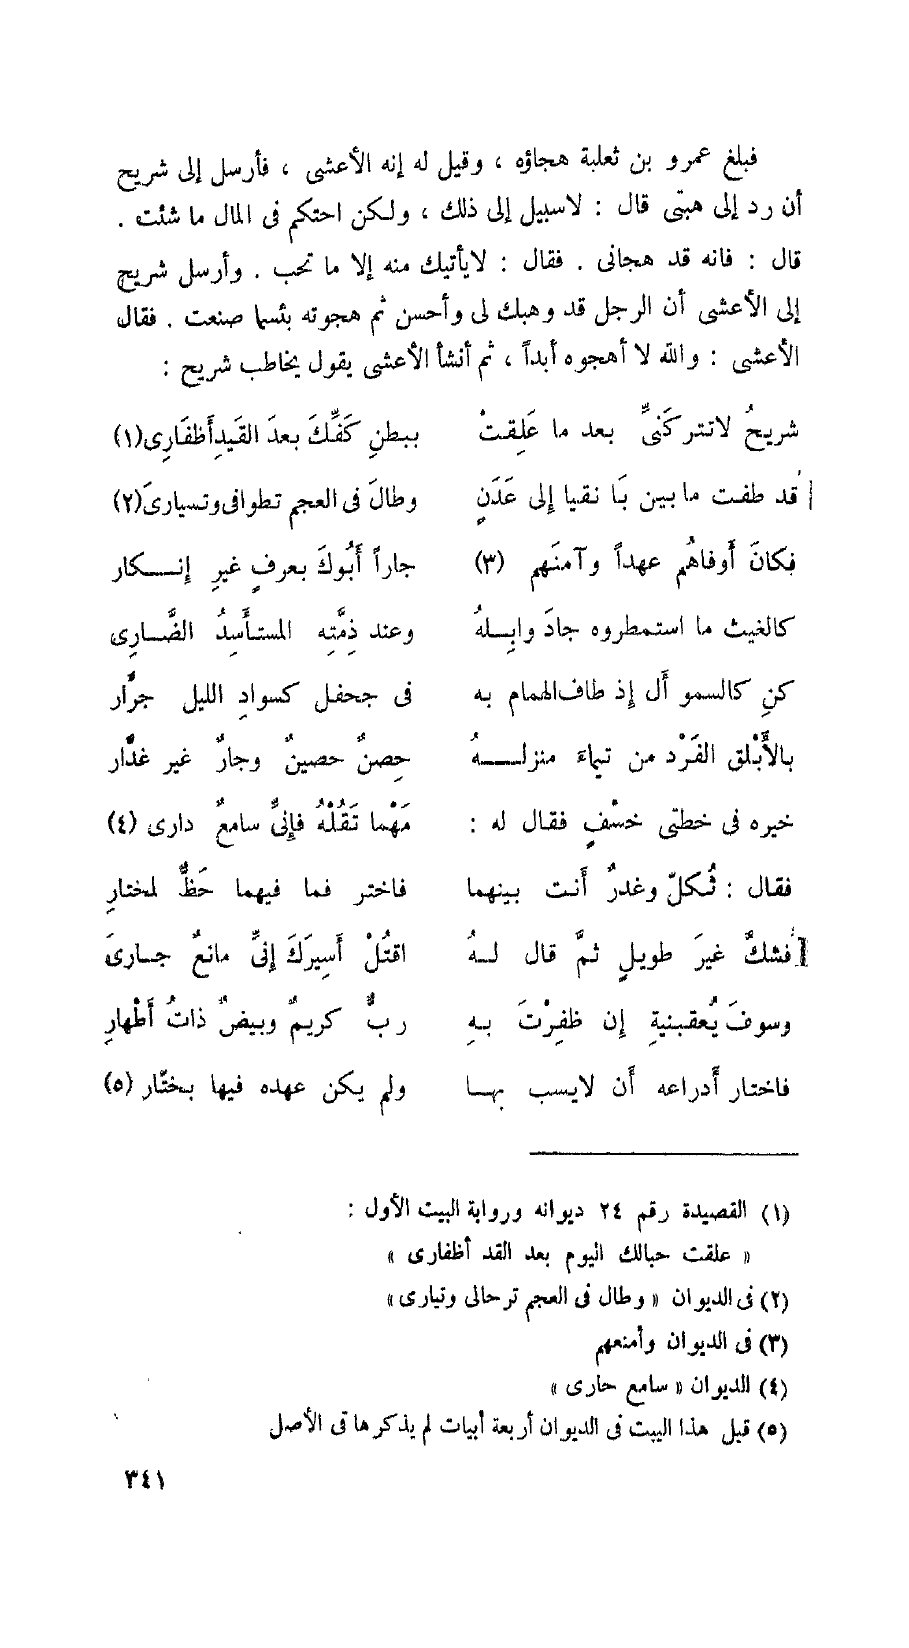 فبلغ عمرو بن ثعلبة هجاؤه ، وقيل له إنه الأعشى ، فأرسل إلى شريح
أن رد إلى هبتى قال : لاسبيل إلى ذلك ، ولكن احتكم فى المال ما شئت .
قال : فانه قد هجانى . فقال : لايأتيك منه إلا ما تحب . وأرسل شريح
إلى الأعشى أن الرجل قد وهبك لى وأحسن ثم هجوته بئسما صنعت . فقال
الأعشى : والله لا أهجوه أبداً ، ثم أنشأ الأعشى يقول يخاطب شريح :
شريحُ لاتتركَنىِّ بعد ما عَلِقتْ ببطنِ كَفِّكَ بعدَ القَيدِ أظفَارِى(١)
قد طفت ما بين بَا نقيا إلى عَدَنٍ وطالَ فى العجم تطوافى وتسيارىَ(٢)
فكانَ أوفاهُم عهداً وآمنَهم (٣) جاراً أَبُوكَ بعرفٍ غيرِ إنــكار
كالغيث ما استمطروه جادَ وابِـلهُ وعند ذِمَّتِه المستأسِدُ الضَّـارِى
كنِ كالسمو أل إذ طاف الهمام به فى جحفل كسوادِ الليل جرَّار
بالأَبْلق الفَرْد من تيماءَ منزلــهُ حِصنٌ حصينٌ وجارٌ غير غدَّار
خيره فى خطتى خسْفٍ فقال له : مَهْما تَقُلْهُ فإنىِّ سامعٌ دارى (٤)
فقال : ثُكلّ وغدرٌ أنت بينهما فاختر فما فيهما حَظٌّ لمختارِ
فشكٌّ غيرَ طويلٍ ثمَّ قال لـهُ اقتُلْ أسِيرَكَ إنىِّ مانعٌ جـارىَ
وسوفَ يُعقبنيةِ إن ظفِرْتَ بـهِ ربٌّ كريمٌ وبيضٌ ذاتُ أطْهارِ
فاختار أدراعه أن لايسب بهـا ولم يكن عهده فيها بختّار (٥)
(١) القصيدة رقم ٢٤ ديوانه ورواية البيت الأول :
« علقت حبالك اليوم بعد القد أظفارى »
(٢) فى الديوان « وطال فى العجم ترحالى وتيارى »
(٣) فى الديوان وأمنعهم
(٤) الديوان « سامع حارى »
(٥) قبل هذا البيت فى الديوان أربعة أبيات لم يذكرها فى الأصل
٣٤١